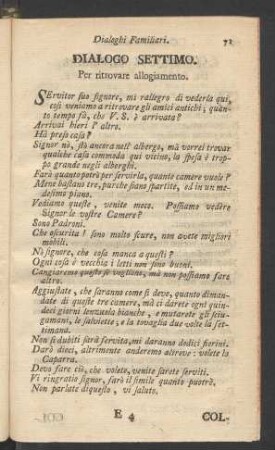 Dialoghi Familiari. 71
DIALOGO SETTIMO.
Per ritrovare allogiamento.
SErvitor suo signore, mi rallegro di vederla qui,
così veniamo a ritrovare gli amici antichi; quan-
to tempo fà, che V. S. è arrivata?
Arrivai hieri l' altro.
Hà preso casa?
Signor nò, stò ancora nell' albergo, mà vorrei trovar
qualche casa commoda quì vicino, la spesa è trop-
po grande negli alberghi.
Farà quanto potrò per servirla, quante camere vuole?
Mene bastano tre, purche siano spartite, od in un me-
desimo piano.
Vediamo queste, venite meco. Possiamo vedère
Signor le vostre Camere?
Sono Padroni.
Che oscurità! sono molto scure, non avete migliori
mobili.
Nò signore, che cosa manca a questi?
Ogni cosa è vecchia i letti non sono buoni.
Cangiaremo questi se vogliono, mà non possiamo fare
altro.
Aggiustate, che saranno come si deve, quanto diman-
date di queste tre camere, mà ci darete ogni quin-
deci giorni lenzuola bianche, e mutarete gli sciu-
gamani, le salviette; e la tovaglia due volte la set-
timana.
Non si dubiti sarà servita, mi daranno dodici fiorini.
Darò dieci, altrimente anderemo altrove: volete la
Caparra.
Devo fare ciò, che volete, venite sarete serviti.
Vi ringratio signor, farò il simile quanto potrò.
Non parlate di questo, vi saluto.
E 4 COL-